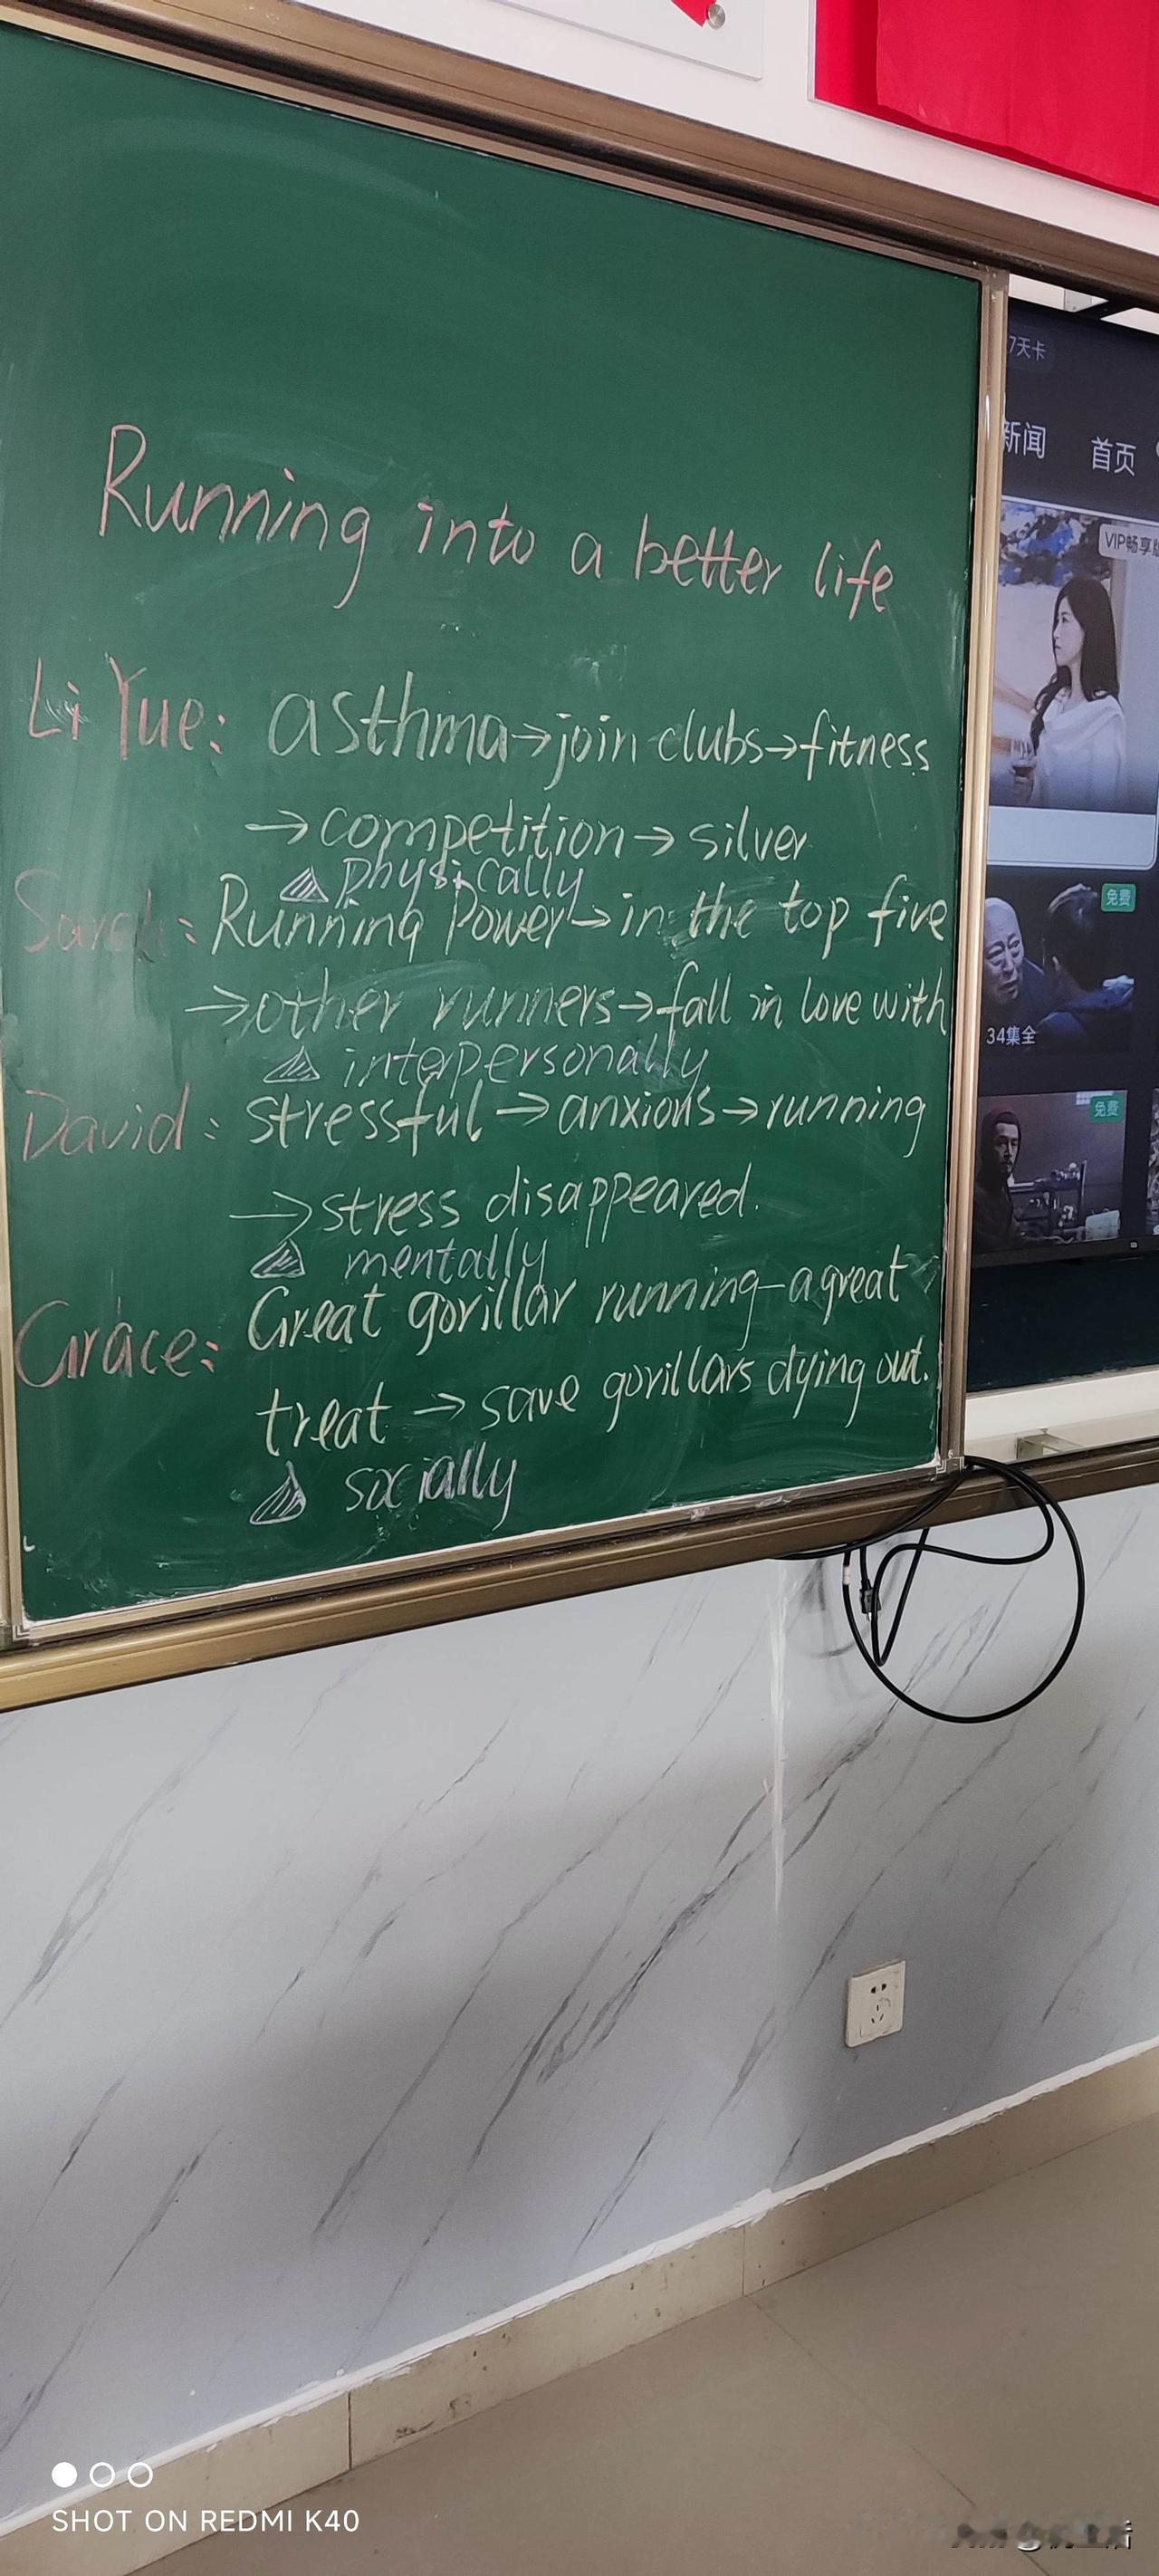 Running into a better life
Li Yue: asthma→join clubs→fitness
→competition→silver
physically
Sarah: Running Power→in the top five
→other runners→fall in love with
interpersonally
David: stressful→anxious→running
→stress disappeared.
mentally
Grace: Great gorillar running—a great
treat→save gorillars dying out.
socially
7天卡
新闻 首页
VIP畅享版
免费
34集全
免费
SHOT ON REDMI K40